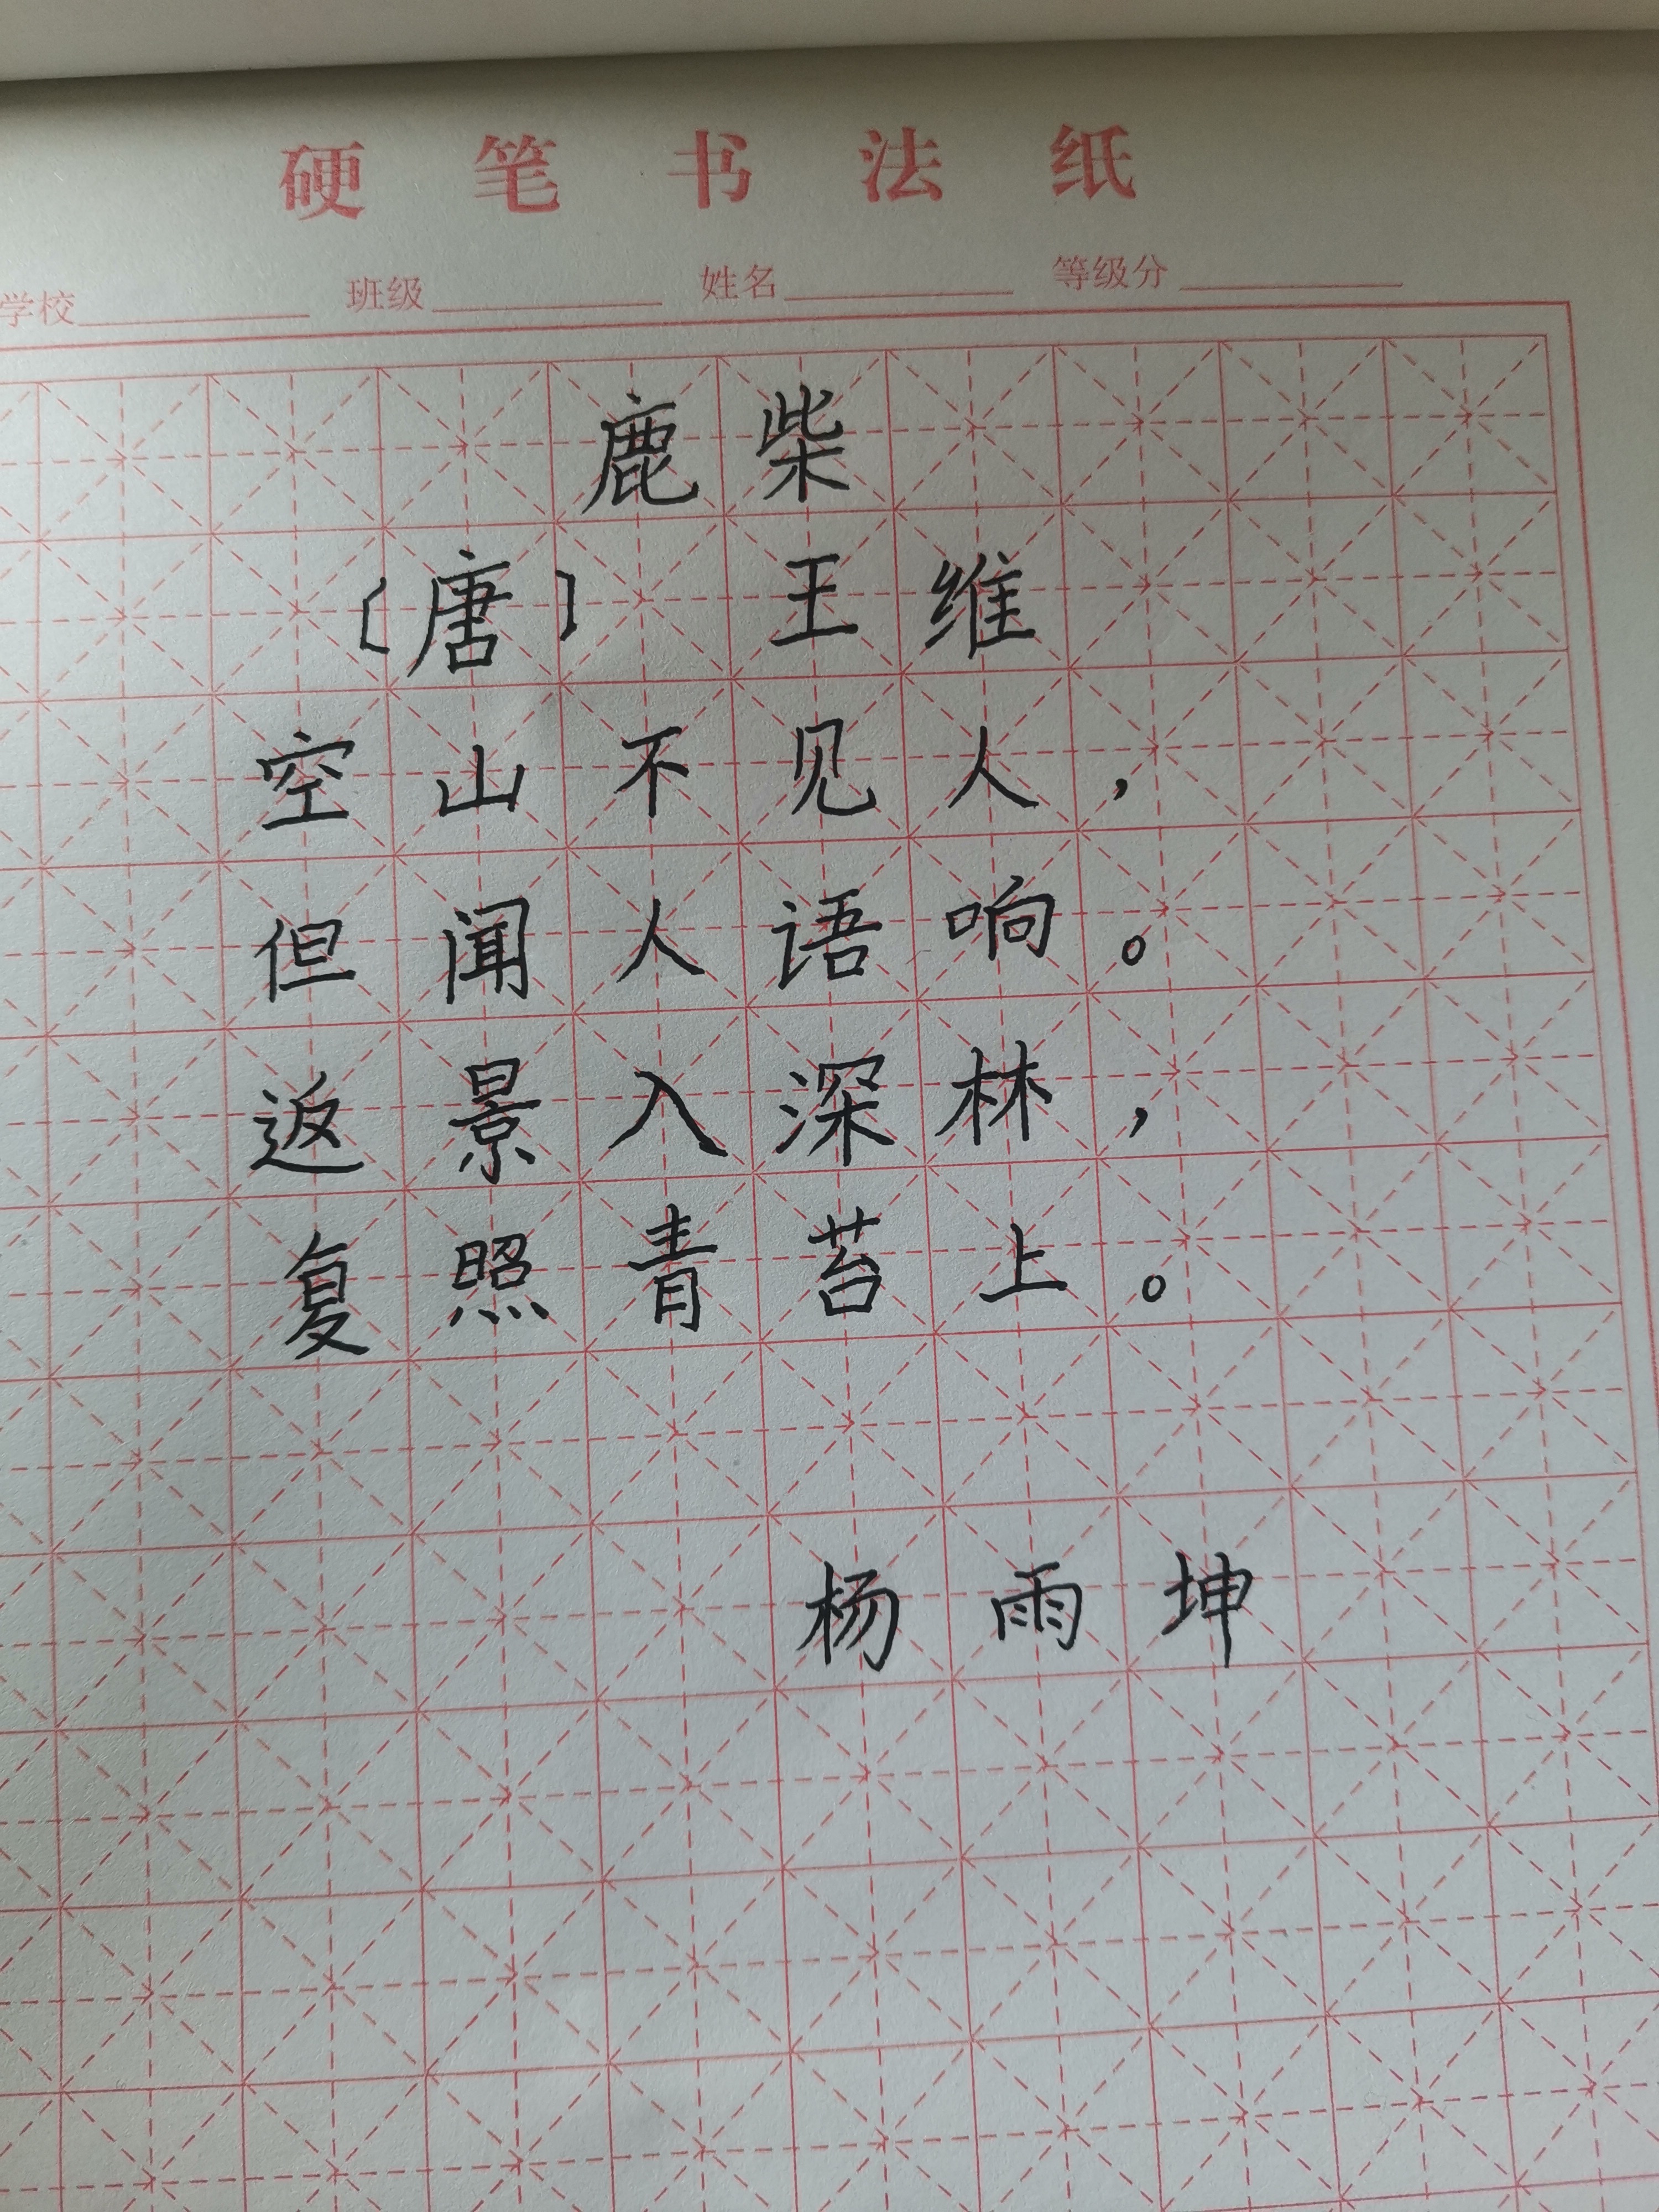 硬笔书法纸
学校 班级 姓名 等级分
鹿柴
〔唐〕 王维
空山不见人，
但闻人语响。
返景入深林，
复照青苔上。
杨雨坤